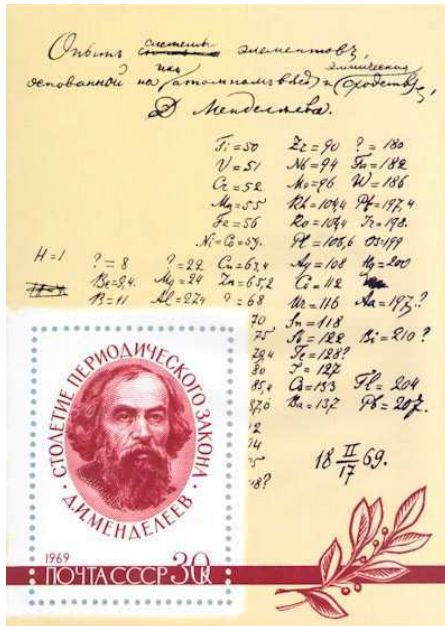 Опытъ системы элементовъ,
основанной на ихъ атомномъ вѣсѣ и химическомъ сходствѣ,
Д. Менделѣева.
Ti = 50 Zr = 90 ? = 180
V = 51 Nb = 94 Ta = 182
Cr = 52 Mo = 96 W = 186
Mn = 55 Rh = 104,4 Pt = 197,4
Fe = 56 Ru = 104,4 Ir = 198.
Ni = Co = 59. Pl = 106,6 Os = 199
H = 1 ? = 8 ? = 22 Cu = 63,4 Ag = 108 Hg = 200
Be = 9,4. Mg = 24 Zn = 65,2 Cd = 112
B = 11 Al = 27,4 ? = 68 Ur = 116 Au = 197?
70 Sn = 118
75 Sb = 122 Bi = 210?
79,4 Te = 128?
80 J = 127
85,4 Cs = 133 Tl = 204
87,6 Ba = 137 Pb = 207.
18 II/17 69.
СТОЛЕТИЕ ПЕРИОДИЧЕСКОГО ЗАКОНА
Д.И.МЕНДЕЛЕЕВ
1969
ПОЧТА СССР 30к